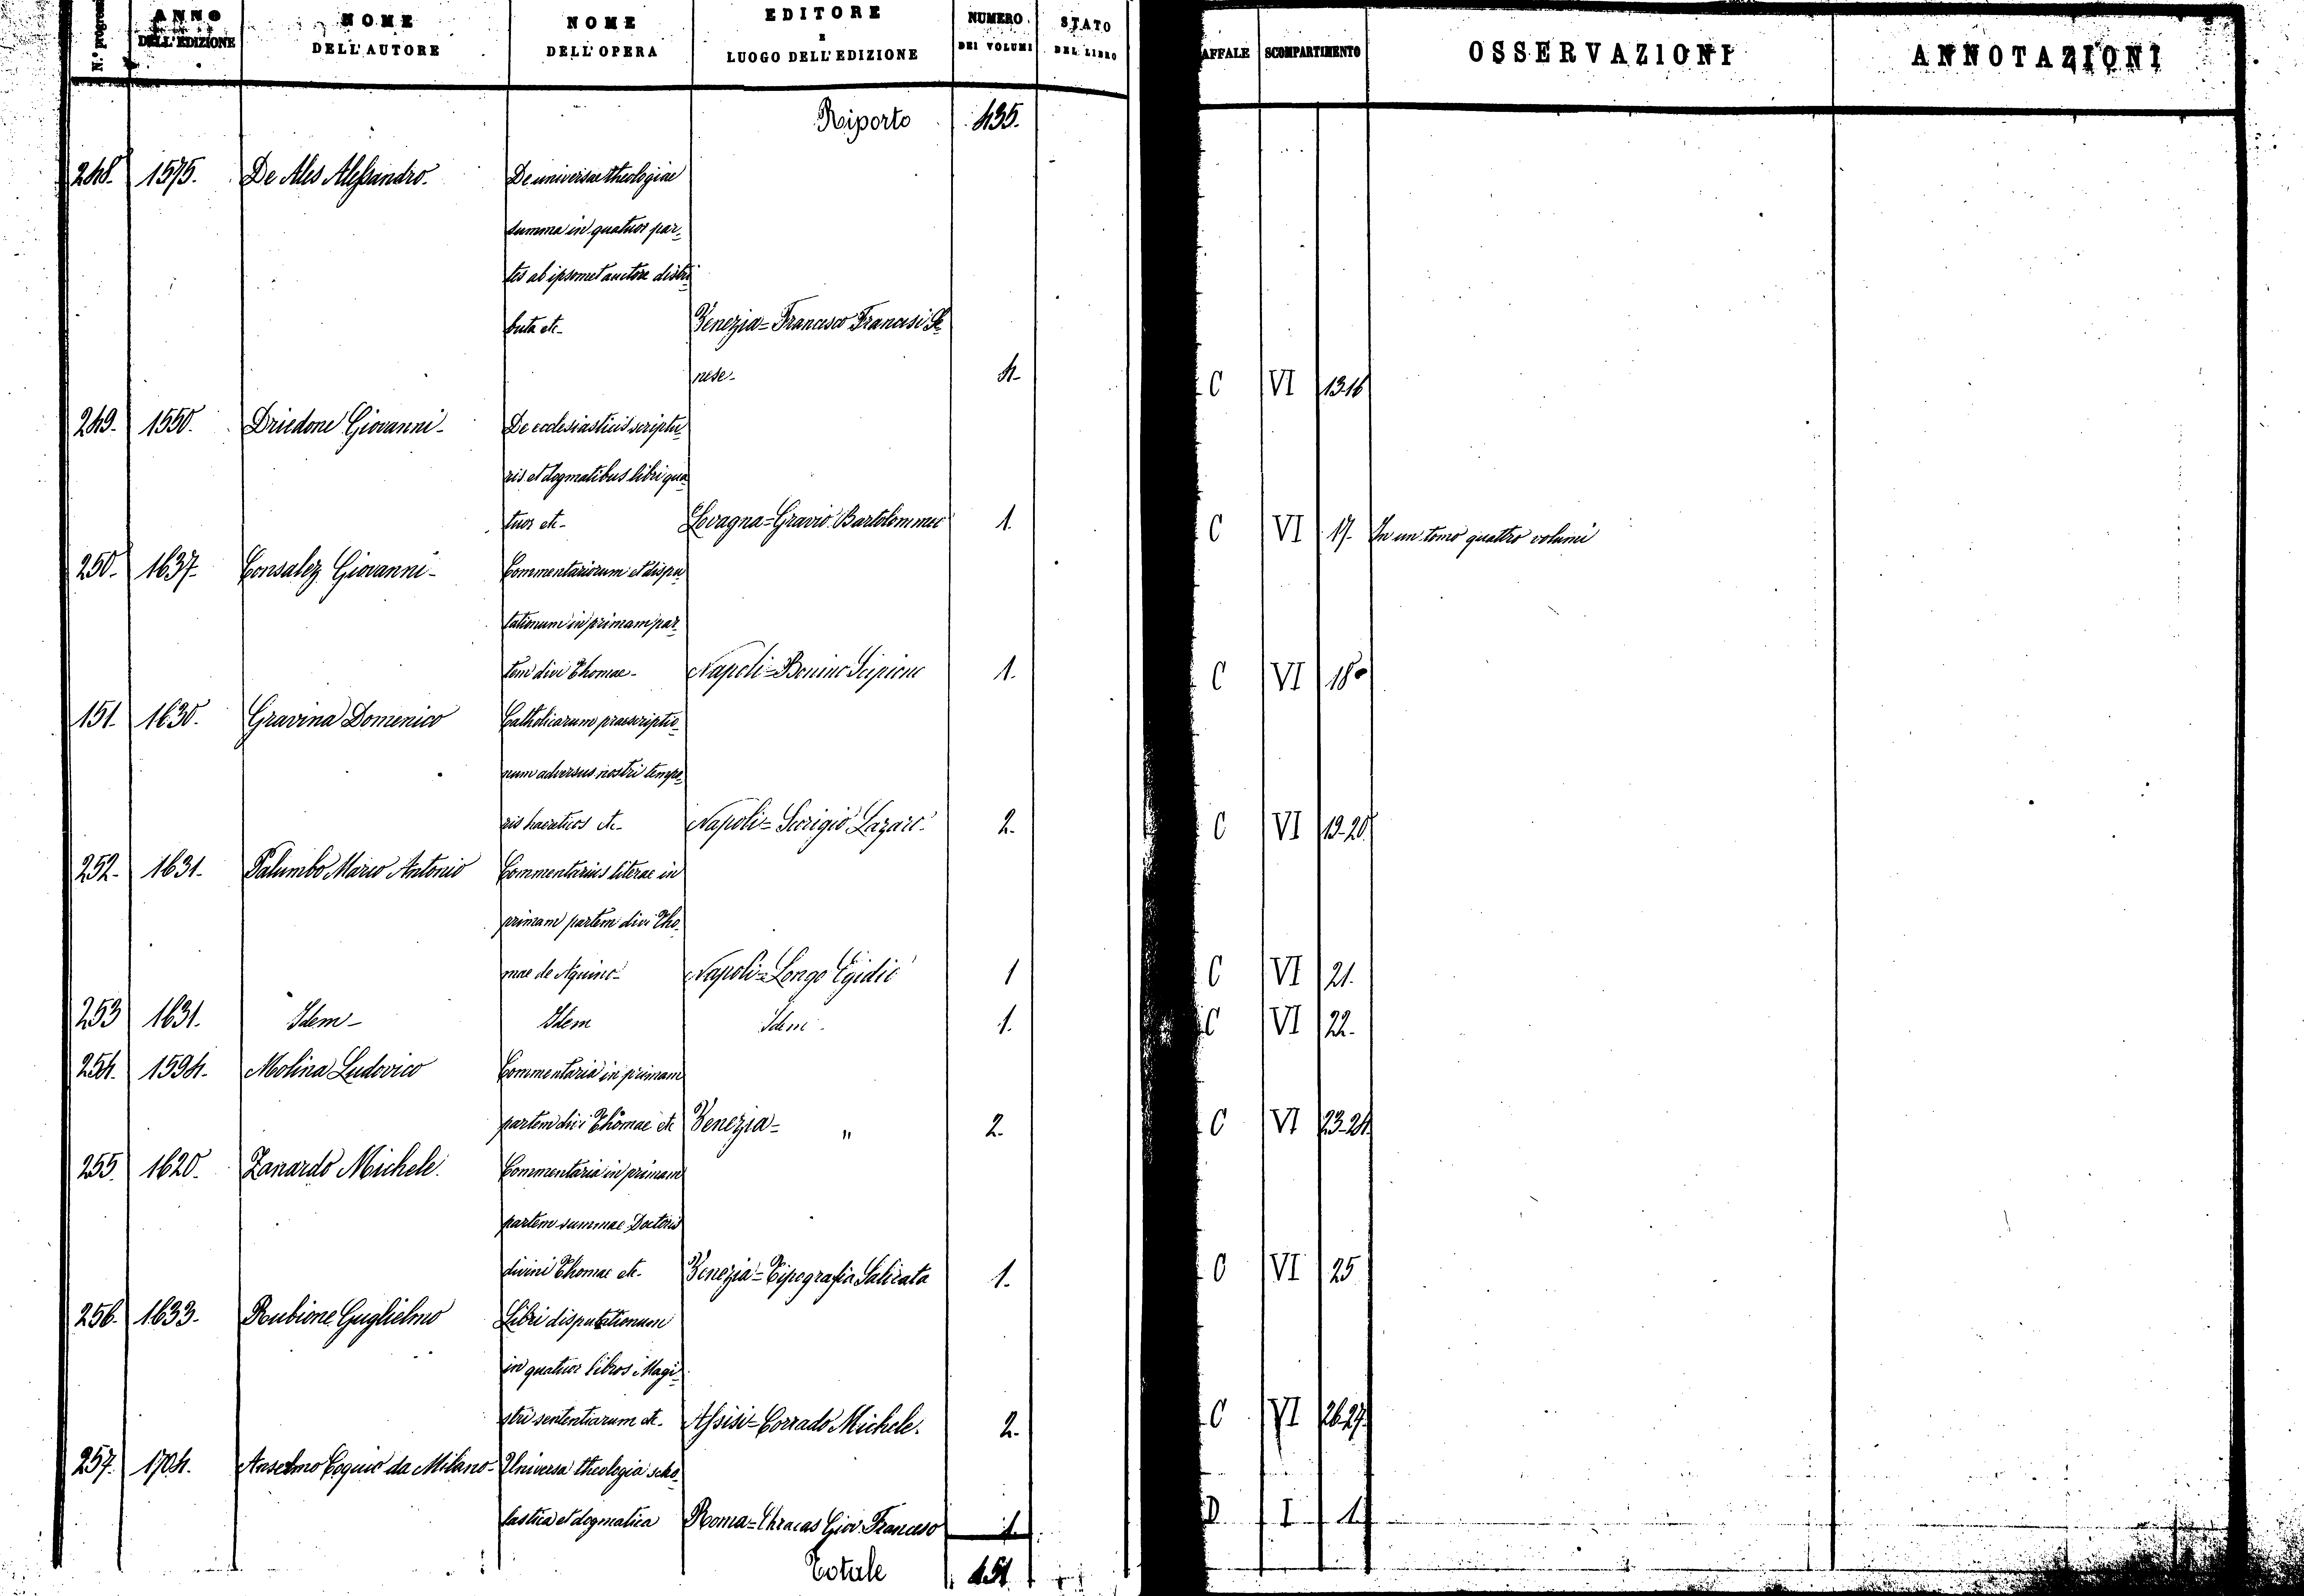 N.° progressi ANNO DELL'EDIZIONE NOME DELL'AUTORE NOME DELL'OPERA EDITORE E LUOGO DELL'EDIZIONE NUMERO DEI VOLUMI STATO DEL LIBRO AFFALE SCOMPARTIMENTO OSSERVAZIONI ANNOTAZIONI
Riporto 435.
248. 1575. De Ales Alessandro. De universae theologiae
summa in quatuor par-
tes ab ipsomet auctore distri
buta etc- Venezia=Francesco Francesi Se-
nese- 4- C VI 13-16
249- 1550. Driedone Giovanni- De ecclesiasticis scriptu-
ris et dogmatibus libri qua-
tuor etc- Lovagna=Gravio Bartolommeo 1. C VI 17- In un tomo quattro volumi
250- 1637- Consalez Giovanni- Commentariorum et dispu-
tationum in primam par-
tem divi Thomae- Napoli=Bonino Scipione 1. C VI 18-
151. 1630. Gravina Domenico Catholicarum praescriptio-
num adversus nostri tempo-
ris haereticos etc- Napoli=Scorigio Lazaro. 2. C VI 19-20
252- 1631- Palumbo Marco Antonio Commentarius literae in
primam partem divi Tho-
mae de Aquino- Napoli=Longo Egidio 1 C VI 21.
253 1631. Idem- Idem Idem- 1. C VI 22-
254. 1594. Molina Ludovico Commentaria in primam
partem divi Thomae etc Venezia= " 2. C VI 23-24
255. 1620. Zanardo Michele. Commentaria in primam
partem summae Doctoris
divini Thomae etc- Venezia=Tipografia Salicata 1. C VI 25
256. 1633- Rubione Guglielmo Libri disputationum
in quatuor libros Magi-
stri sententiarum etc. Assisi=Corrado Michele. 2. C VI 26-27.
257. 1704. Anselmo Coquio da Milano- Universa theologia scho-
lastica et dogmatica Roma=Chracas Giov. Francesco 1. D I 1
Totale 451